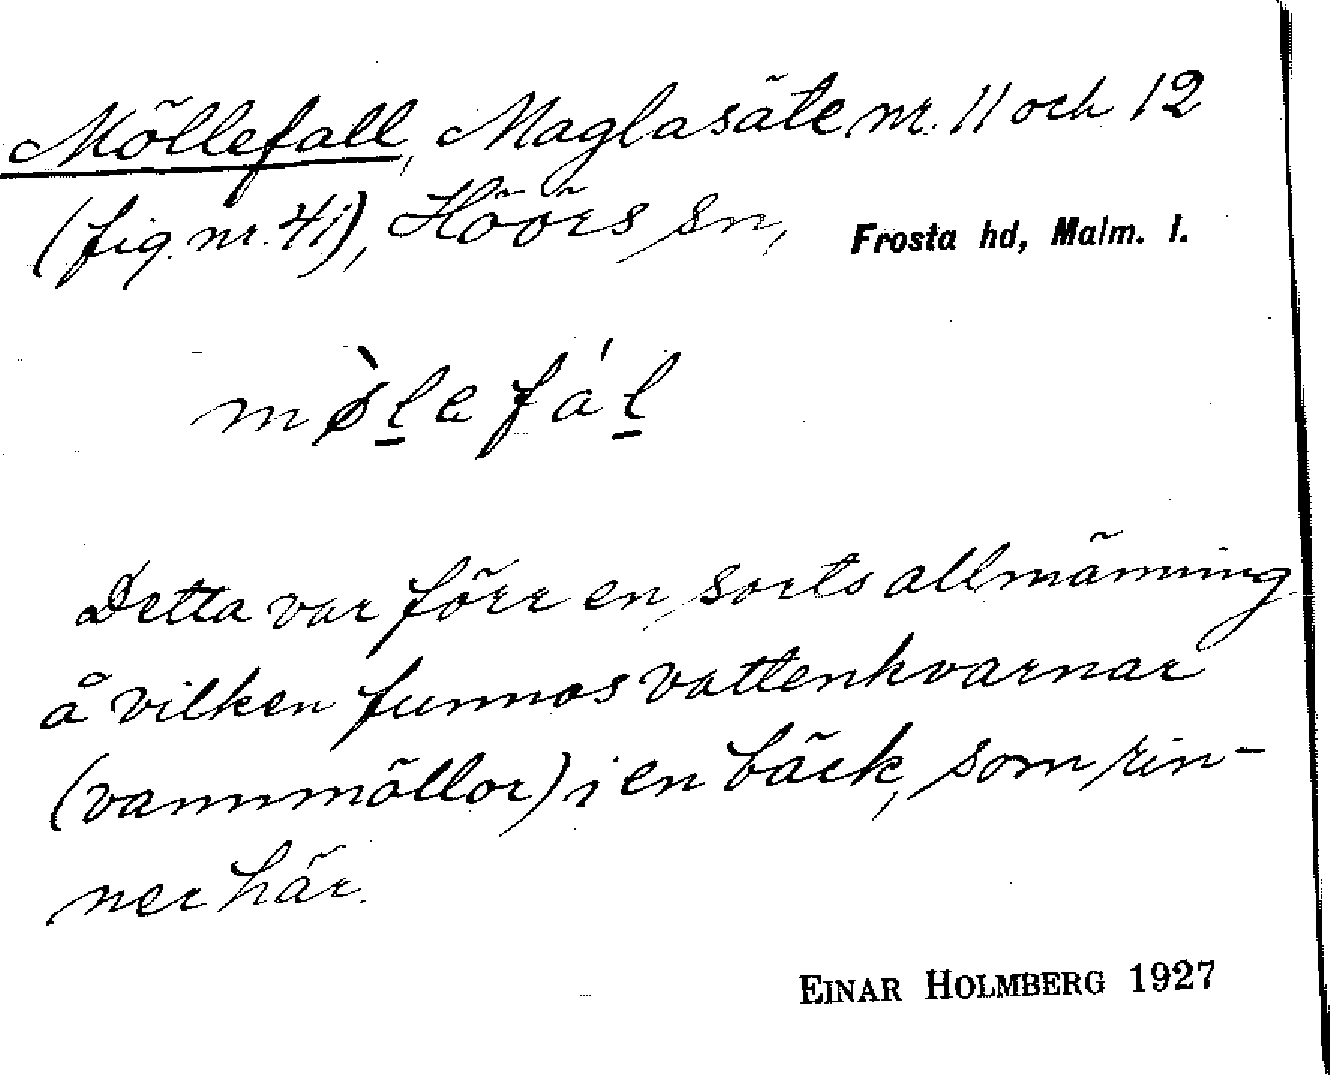 Möllefall, Maglasäte nr. 11 och 12
(fig. nr. 41), Höörs sn, Frosta hd, Malm. l.
mø̀l̲efál̲
Detta var förr en sorts allmänning
å vilken funnos vattenkvarnar
(vannmöllor) i en bäck, som rin-
ner här.
EINAR HOLMBERG 1927